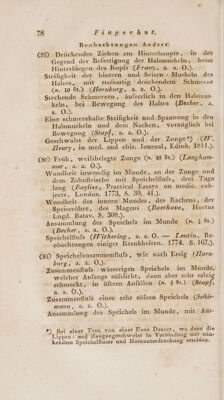 78 Fingerhut.
Beobachtungen Andrer.
(75) Drückendes Ziehen am Hinterhaupte, in der
Gegend der Befestigung der Halsmuskeln, beim
Hinterbiegen des Kopfs (Franz, a. a. O.).
Steifigkeit der hintern und Seiten-Muskeln des
Halses, mit stofsartig drückendem Schmerze
(n. 10 St.) (Hornburg, a. a. O.).
Stechende Schmerzen, äusserlich in den Halsmus-
keln, bei Bewegung des Halses (Becher, a.
a. O.).
Eine schmerzhafte Steifigkeit und Spannung in den
Halsmuskeln und dem Nacken, vorzüglich bei
Bewegung (Stapf, a. a. O.).
Geschwulst der Lippen und der Zunge*) (W.
Henry, in med. and chir. Journal, Edinb. 1811.).
(80) Früh, weifsbelegte Zunge (n. 48 St.) (Langham-
mer, a. a. O.).
Wundheit inwendig im Munde, an der Zunge und
dem Zahnfleische mit Speichelflufs, den Tag
lang (Baylies, Practical Essays on medic. sub-
jects. London. 1773, S. 39, 41.).
Wundheit des innern Mundes, des Rachens, der
Speiseröhre, des Magens (Boerhave, Hortus
Lugd. Batav. S. 308.).
Ansammlung des Speichels im Munde (n. ¼ St.)
(Becher, a. a. O.).
Speichelflufs (Withering, a. a. O. — Lentin, Be-
obachtungen einiger Krankheiten. 1774. S. 167.).
(85) Speichelzusammenflufs, wie nach Essig (Horn-
burg, a. a. O.).
Zusammenflufs wässerigen Speichels im Munde,
welcher Anfangs süfslicht, dann aber sehr salzig
schmeckt, in öftern Anfällen (n. § St.) (Stapf,
a. a. O.).
Zusammenflufs eines sehr süfsen Speichels (Schie-
mann, a. a. O.).
Ansammlung des Speichels im Munde, mit Aus-
*) Bei einer Frau von einer Unze Decoct, wo denn die
Lippen- und Zungengeschwulst in Verbindung mit stin-
kendem Speichelflusse und Harnunterdrückung erschien.